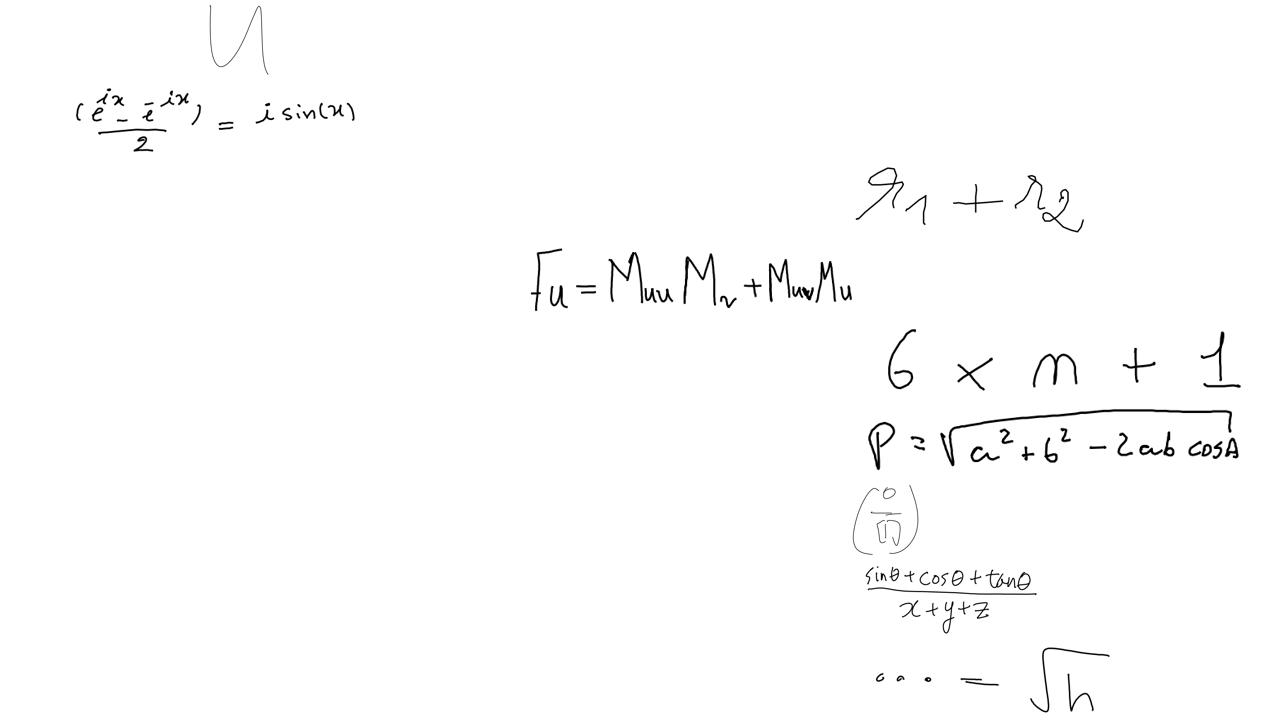 u
(e^{ix} - e^{-ix})/2 = i sin(x)
r_1 + r_2
F_u = M_{uu} M_v + M_{uv} M_u
6 × n + 1
P = √(a² + b² - 2ab cosA)
(sinθ + cosθ + tanθ)/(x + y + z)
... = √h